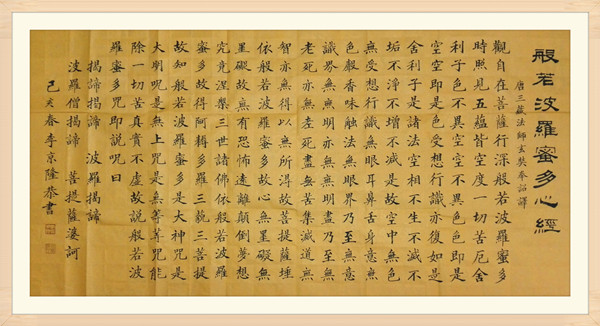 般若波羅蜜多心經
唐三藏法師玄奘奉詔譯
觀自在菩薩行深般若波羅蜜多
時照見五蘊皆空度一切苦厄舍
利子色不異空空不異色色即是
空空即是色受想行識亦復如是
舍利子是諸法空相不生不滅不
垢不淨不增不減是故空中無色
無受想行識無眼耳鼻舌身意無
色聲香味觸法無眼界乃至無意
識界無無明亦無無明盡乃至無
老死亦無老死盡無苦集滅道無
智亦無得以無所得故菩提薩埵
依般若波羅蜜多故心無罣礙無
罣礙故無有恐怖遠離顛倒夢想
究竟涅槃三世諸佛依般若波羅
蜜多故得阿耨多羅三藐三菩提
故知般若波羅蜜多是大神呪是
大明呪是無上呪是無等等呪能
除一切苦真實不虛故說般若波
羅蜜多呪即說呪曰
揭諦揭諦 波羅揭諦
波羅僧揭諦 菩提薩婆訶
己亥春李京隆恭書